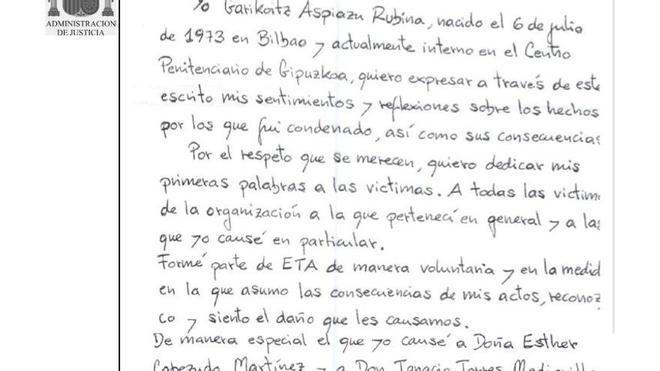 ADMINISTRACION
DE JUSTICIA
Yo Garikoitz Aspiazu Rubina, nacido el 6 de julio
de 1973 en Bilbao y actualmente interno en el Centro
Penitenciario de Gipuzkoa, quiero expresar a través de este
escrito mis sentimientos y reflexiones sobre los hechos
por los que fui condenado, así como sus consecuencias
Por el respeto que se merecen, quiero dedicar mis
primeras palabras a las victimas. A todas las victim
de la organización a la que pertenecí en general y a las
que yo causé en particular.
Formé parte de ETA de manera voluntaria y en la medid
en la que asumo las consecuencias de mis actos, reconoz
co y siento el daño que les causamos.
De manera especial el que yo causé a Doña Esther
Cabezudo Martínez y a Don Ignacio Torres